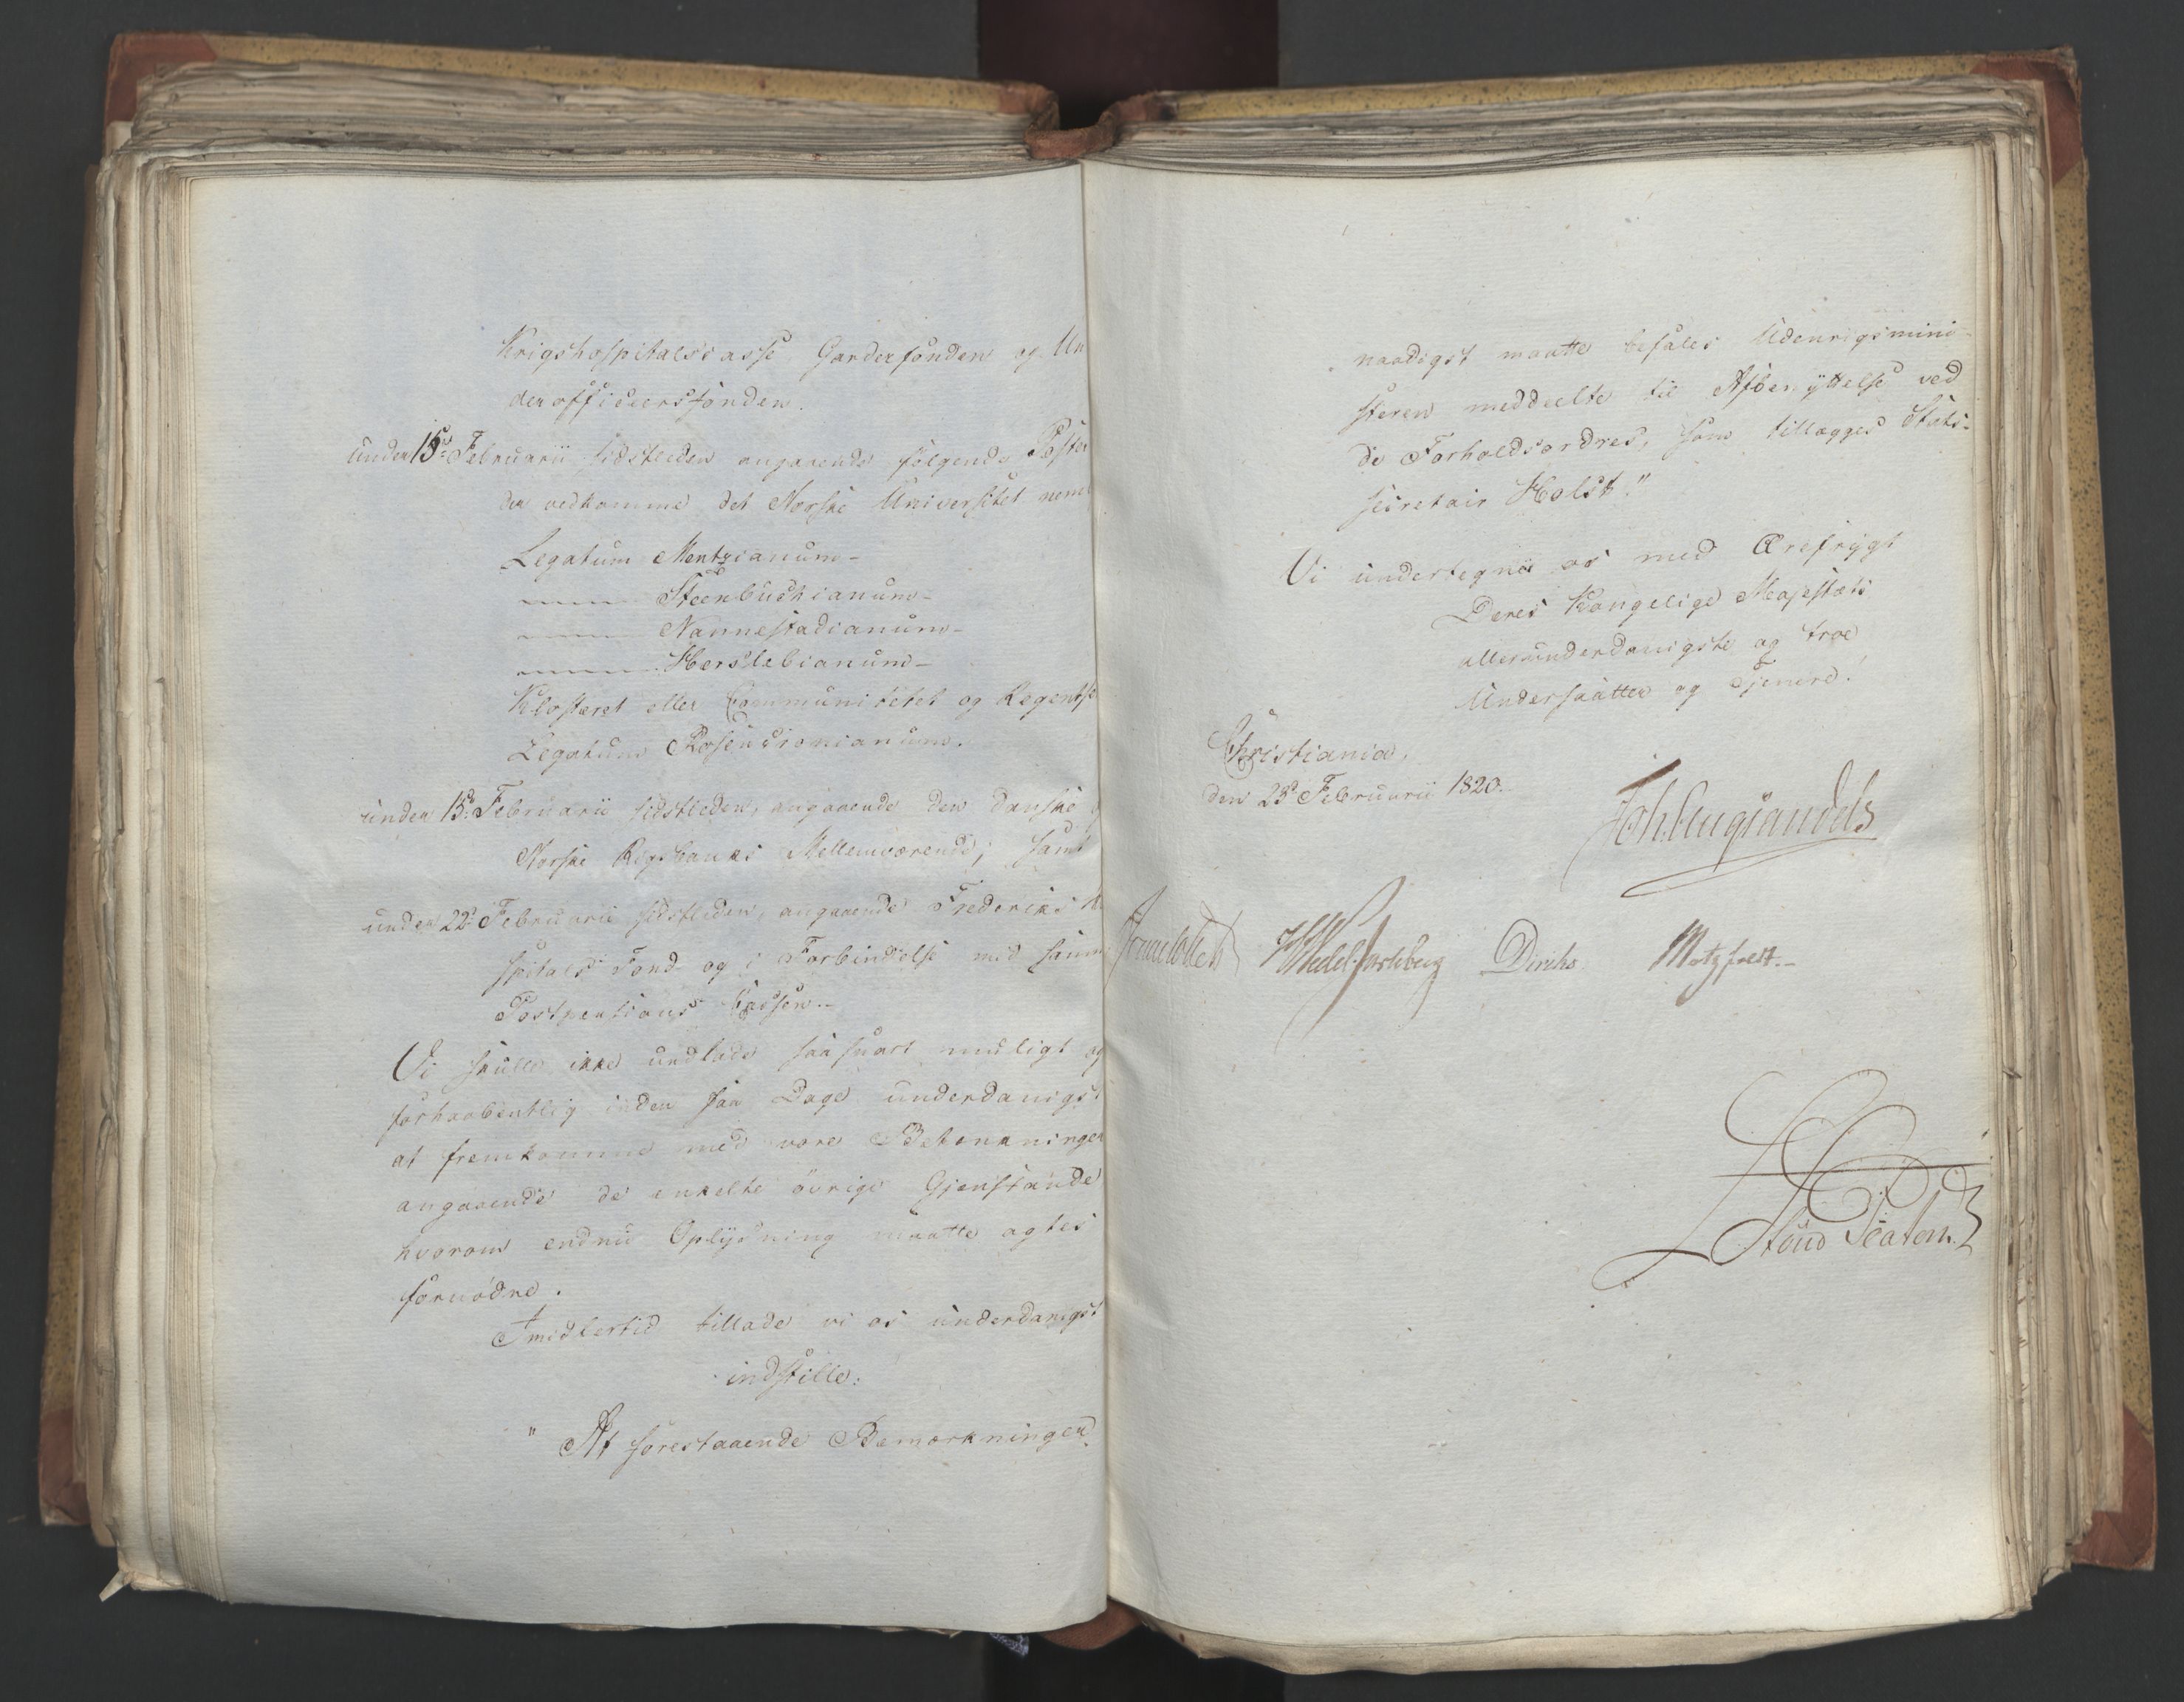 Krigshospitalscasse Garderfonden og Un
derofficeersfonden.
under 15de Februarii sidstleden angaaende følgende Poster
der vedkomme det Norske Universitet neml
Legatum Mentzianum-
Steenbuchianum-
Nannestadianum-
Herslebianum-
Klosteret eller Communitetet og Regentse
Legatum Rosencronianum.
under 15de Februarii sidstleden, angaaende den danske
Norske Rigsbanks Mellemværende; samt
under 22de Februarii sidstleden, angaaende Frederiks Ho
spitals Fond og i Forbindelse med samm
Postpensions Cassen.-
Vi skulle ikke undlade saasnart mueligt og
forhaabentlig inden faa Dage underdanigst
at fremkomme med vore Betænkninger
angaaende de enkelte øvrige Gjenstande
hvorom endnu Oplysning maatte agtes
fornødne.
Imidlertid tillade vi os underdanigst
indstille:
" At forestaaende Bemærkninger
naadigst maatte befales Udenrigsmini-
steren meddeelte til Afbenyttelse ved
de Forholdsordres, som tillægges Stats-
secretair Holst."
Vi undertegne os med Ærefrygt
Deres Kongelige Majestæts
allerunderdanigste og troe
Undersaatter og Tjenere!
Christiania,
den 25de Februarii 1820.
Joh. Aug. Sandels
Sommerhielm HWedel Jarlsberg Diriks Motzfeldt.-